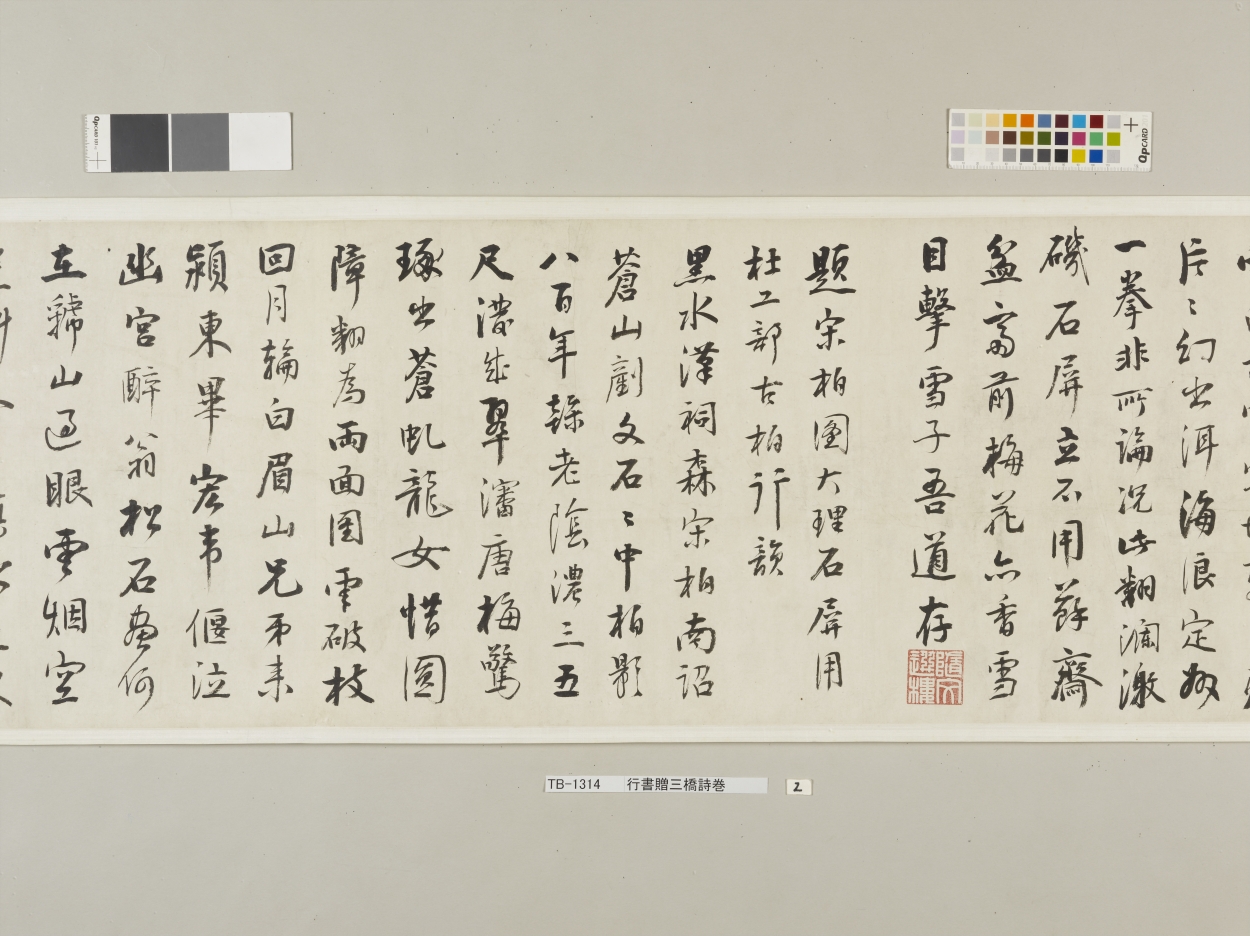 片〻幻出洱海浪定如
一拳非所論況此翻瀾激
磯石屏立不用蘇齋
盆盎前梅花亦香雪
目擊雪子吾道存
題宋柏圖大理石屏用
杜工部古柏行韻
黑水漢祠森宋柏南詔
蒼山劚文石〻中柏影
八百年餘老陰濃三五
尺濃成翠瀋唐梅驚
琢出蒼虬龍女惜圓
障翻為兩面圖雲破枝
回月輪白眉山兄弟來
潁東畢宏韋偃泣
幽宮醉翁松石畫何
在虢山過眼雲烟空
TB-1314 行書贈三橋詩巻
2
QPCARD
QPCARD